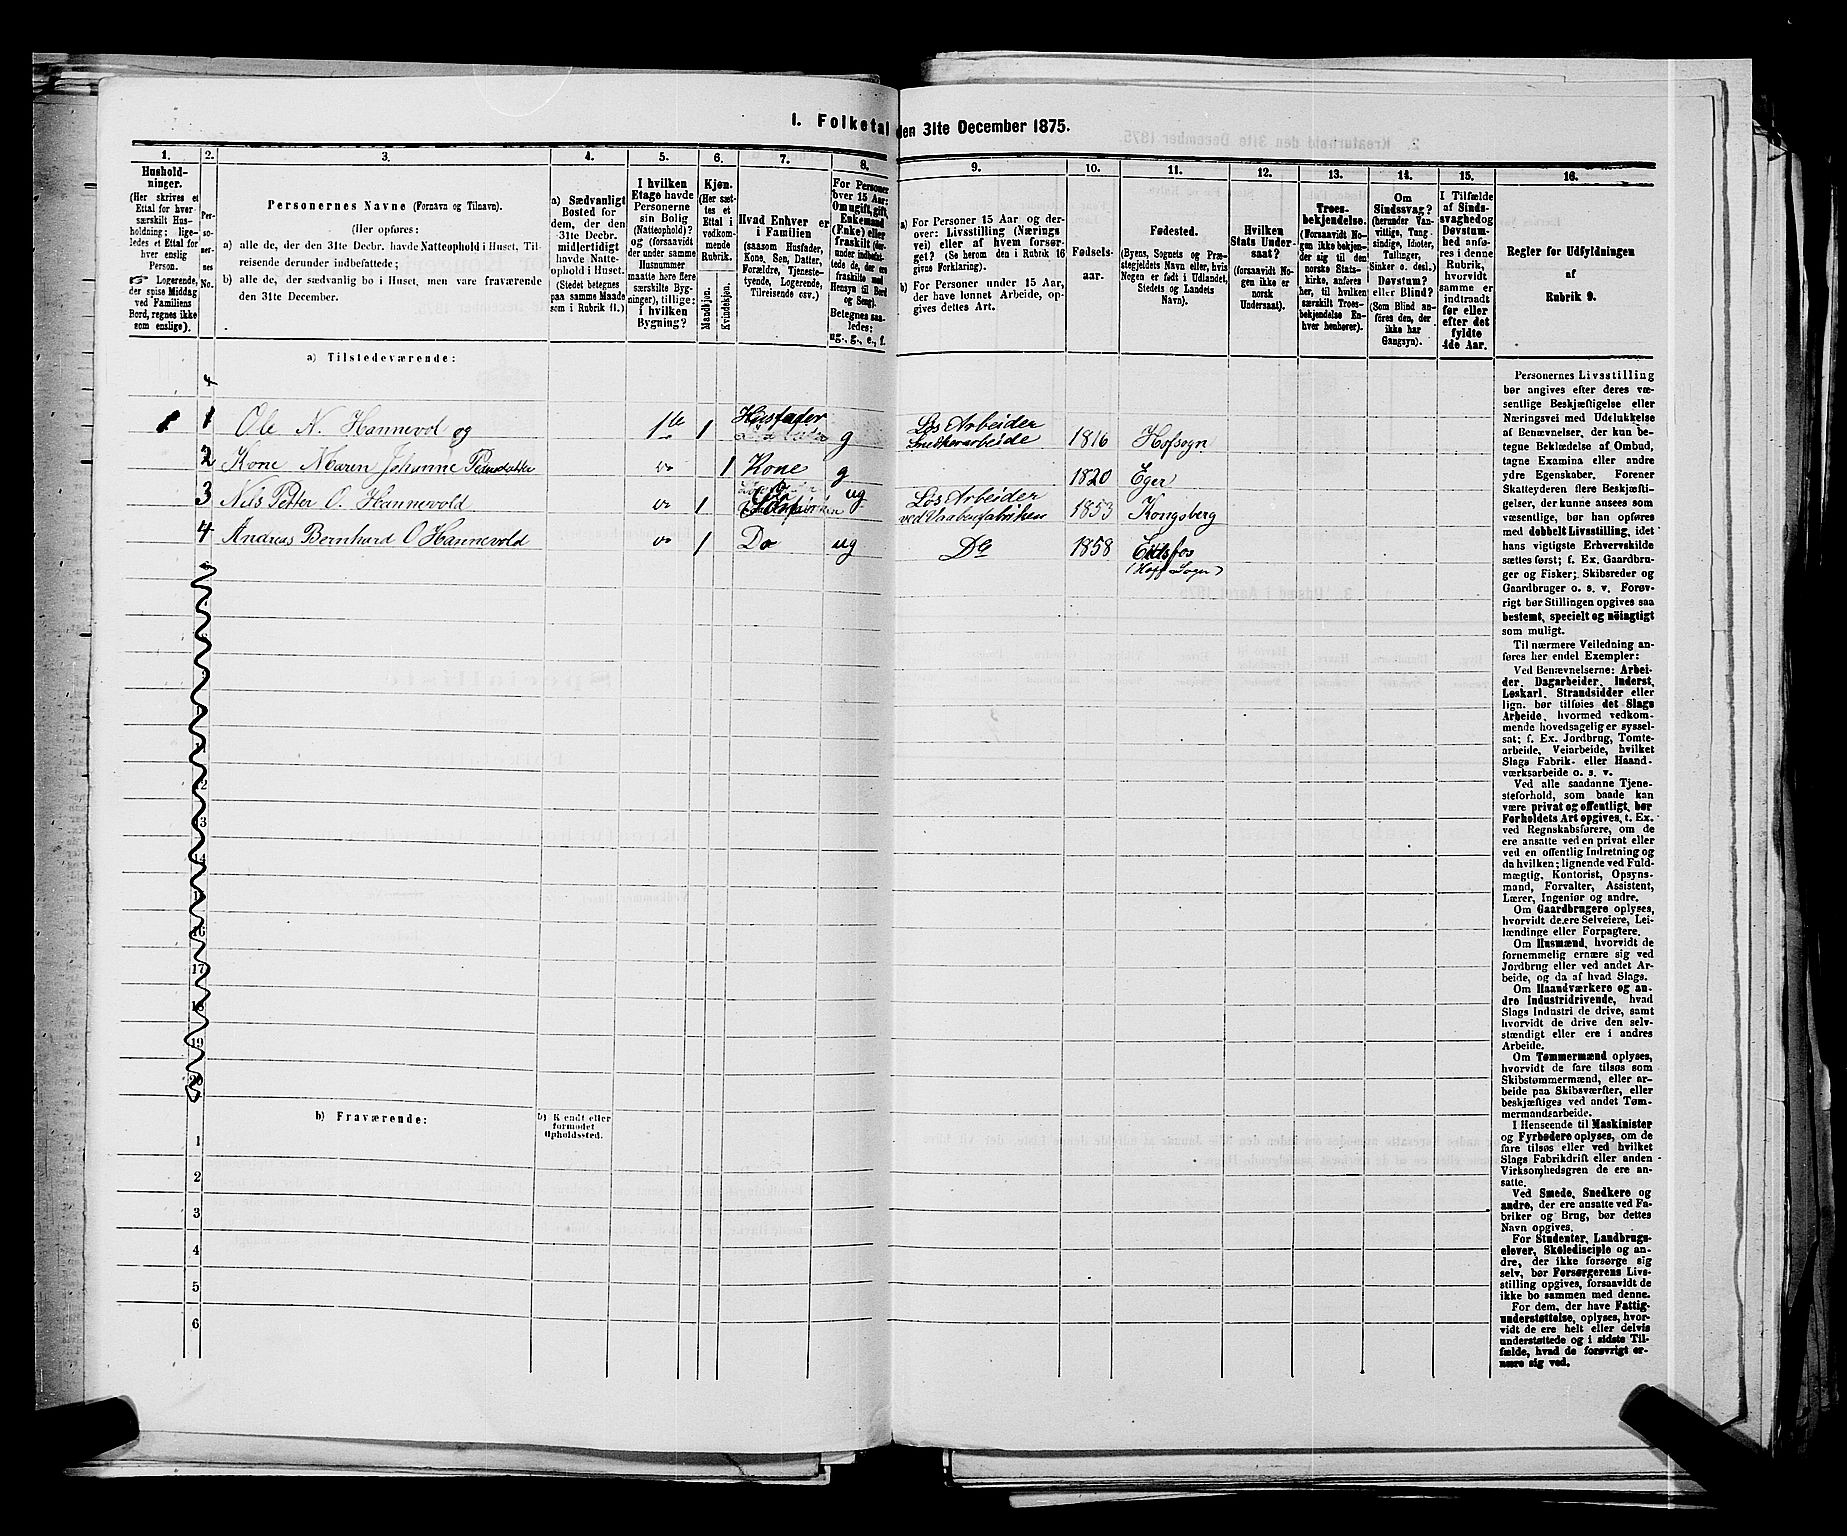 1. Folketal den 31te December 1875.
1.
Hushold-
ninger.
(Her skrives et
Ettal for hver
særskilt Hus-
holdning; lige-
ledes et Ettal for
hver enslig
Person.
Logerende,
der spise Middag
ved Familiens
Bord, regnes ikke
som enslige).
2.
Per-
so-
ner-
nes
No.
3.
Personernes Navne (Fornavn og Tilnavn).
(Her opføres:
a) alle de, der den 31te Decbr. havde Natteophold i Huset, Til-
reisende derunder indbefattede;
b) alle de, der sædvanlig bo i Huset, men vare fraværende
den 31te December.
4.
a) Sædvanligt
Bosted for
dem, der den
31te Decbr.
midlertidigt
havde Natte-
ophold i Huset.
(Stedet betegnes
paa samme Maade
som i Rubrik 11.)
5.
I hvilken
Etage havde
Personerne
sin Bolig
(Natteophold)?
og (forsaavidt
der under samme
Husnummer
maatte høre flere
særskilte Byg-
ninger), tillige:
i hvilken
Bygning?
6.
Kjøn.
(Her sæt-
tes et
Ettal i
vedkom-
mende
Rubrik.
Mandkjøn.
Kvindekjøn.
7.
Hvad Enhver er
i Familien
(saasom Husfader,
Kone, Søn, Datter,
Forældre, Tjeneste-
tyende, Logerende,
Tilreisende osv.)
8.
For Personer
over 15 Aar:
Om ugift, gift,
Enkemand
(Enke) eller
fraskilt (der-
under indbefat-
tede de, der ere
fraskilte med
Hensyn til Bord
og Seng).
Betegnes saa-
ledes:
ug., g., e., f.
9.
a) For Personer 15 Aar og der-
over: Livsstilling (Nærings
vei) eller af hvem forsør-
get? (Se herom den i Rubrik 16
givne Forklaring).
b) For Personer under 15 Aar,
der have lønnet Arbeide, op-
gives dettes Art.
10.
Fødsels-
aar.
11.
Fødested.
(Byens, Sognets og Præ-
stegjeldets Navn eller, hvis
Nogen er født i Udlandet,
Stedets og Landets
Navn).
12.
Hvilken
Stats Under-
saat?
(forsaavidt No-
gen ikke er
norsk
Undersaat).
13.
Troes-
bekjendelse.
(Forsaavidt No-
gen ikke bekjen-
der sig til den
norske Stats-
kirke, anføres
her, til hvilken
særskilt Troes-
bekjendelse En-
hver henhører).
14.
Om
Sindssvag?
(herunder Van-
vittige, Tung-
sindige, Idioter,
Tullinger,
Sinker o. desl.)
Døvstum?
eller Blind?
(Som Blind an-
føres den, der
ikke har
Gangsyn).
15.
I Tilfælde
af Sinds-
svaghed og
Døvstum-
hed anfø-
res i denne
Rubrik,
hvorvidt
samme er
indtraadt
før eller
efter det
fyldte
4de Aar.
16.
Regler for Udfyldningen
af
Rubrik 9.
a) Tilstedeværende:
4
1 1 Ole N. Hannevol og 1ste 1 Husfader g Løs Arbeider Snedkerarbeide 1816 Hofsogn
2 Kone Maren Johanne do 1 Kone g 1820 Eger
3 Nils Petter O. Hannevold do 1 ug Løs Arbeider ved Vaabenfabriken 1853 Kongsberg
4 Andreas Bernhard O Hannevold do 1 Do ug Do 1858 Eidsfos
(Hoff Sogn)
13
17
19
b) Fraværende:
b) Kjendt eller
formodet
Opholdssted.
1
2
3
4
5
6
Personernes Livsstilling
bør angives efter deres væ-
sentlige Beskjæftigelse eller
Næringsvei med Udelukkelse
af Benævnelser, der kun be-
tegne Beklædelse af Ombud,
tagne Examina eller andre
ydre Egenskaber. Forener
Skatteyderen flere Beskjæfti-
gelser, der kunne ansees som
væsentlige, bør han opføres
med dobbelt Livsstilling, idet
hans vigtigste Erhvervskilde
sættes først; f. Ex. Gaardbru-
ger og Fisker; Skibsreder og
Gaardbruger o. s. v. Forøv-
rigt bør Stillingen opgives saa
bestemt, specielt og nøiagtigt
som muligt.
Til nærmere Veiledning an-
føres her endel Exempler:
Ved Benævnelserne: Arbei-
der, Dagarbeider, Inderst,
Løskarl, Strandsidder eller
lign. bør tilføies det Slags
Arbeide, hvormed vedkom-
mende hovedsagelig er syssel-
sat; f. Ex. Jordbrug, Tomte-
arbeide, Veiarbeide, hvilket
Slags Fabrik- eller Haand-
værksarbeide o. s. v.
Ved alle saadanne Tjene-
steforhold, som baade kan
være privat og offentligt, bør
Forholdets Art opgives, t. Ex.
ved Regnskabsførere, om de
ere ansatte ved en privat eller
ved en offentlig Indretning og
da hvilken; lignende ved Fuld-
mægtig, Kontorist, Opsyns-
mand, Forvalter, Assistent,
Lærer, Ingeniør og andre.
Om Gaardbrugere oplyses,
hvorvidt de ere Selveiere, Lei-
lændinge eller Forpagtere.
Om Husmænd, hvorvidt de
fornemmelig ernære sig ved
Jordbrug eller ved andet Ar-
beide, og da af hvad Slags.
Om Haandværkere og an-
dre Industridrivende, hvad
Slags Industri de drive, samt
hvorvidt de drive den selv-
stændigt eller ere i andres
Arbeide.
Om Tømmermænd oplyses,
hvorvidt de fare tilsøs som
Skibstømmermænd, eller ar-
beide paa Skibsværfter, eller
beskjæftiges ved andet Tøm-
mermandsarbeide.
I Henseende til Maskinister
og Fyrbødere oplyses, om de
fare tilsøs eller ved hvilket
Slags Fabrikdrift eller anden
Virksomhedsgren de ere an-
satte.
Ved Smede, Snedkere og
andre, der ere ansatte ved Fa-
briker og Brug, bør dettes
Navn opgives.
For Studenter, Landbrugs-
elever, Skoledisciple og an-
dre, der ikke forsørge sig
selv, bør Forsørgerens Livs-
stilling opgives, forsaavidt de
ikke bo sammen med denne.
For dem, der have Fattig-
understøttelse, oplyses, hvor-
vidt de ere helt eller delvis
understøttede og i sidste Til-
fælde, hvad de forøvrigt er-
nære sig ved.